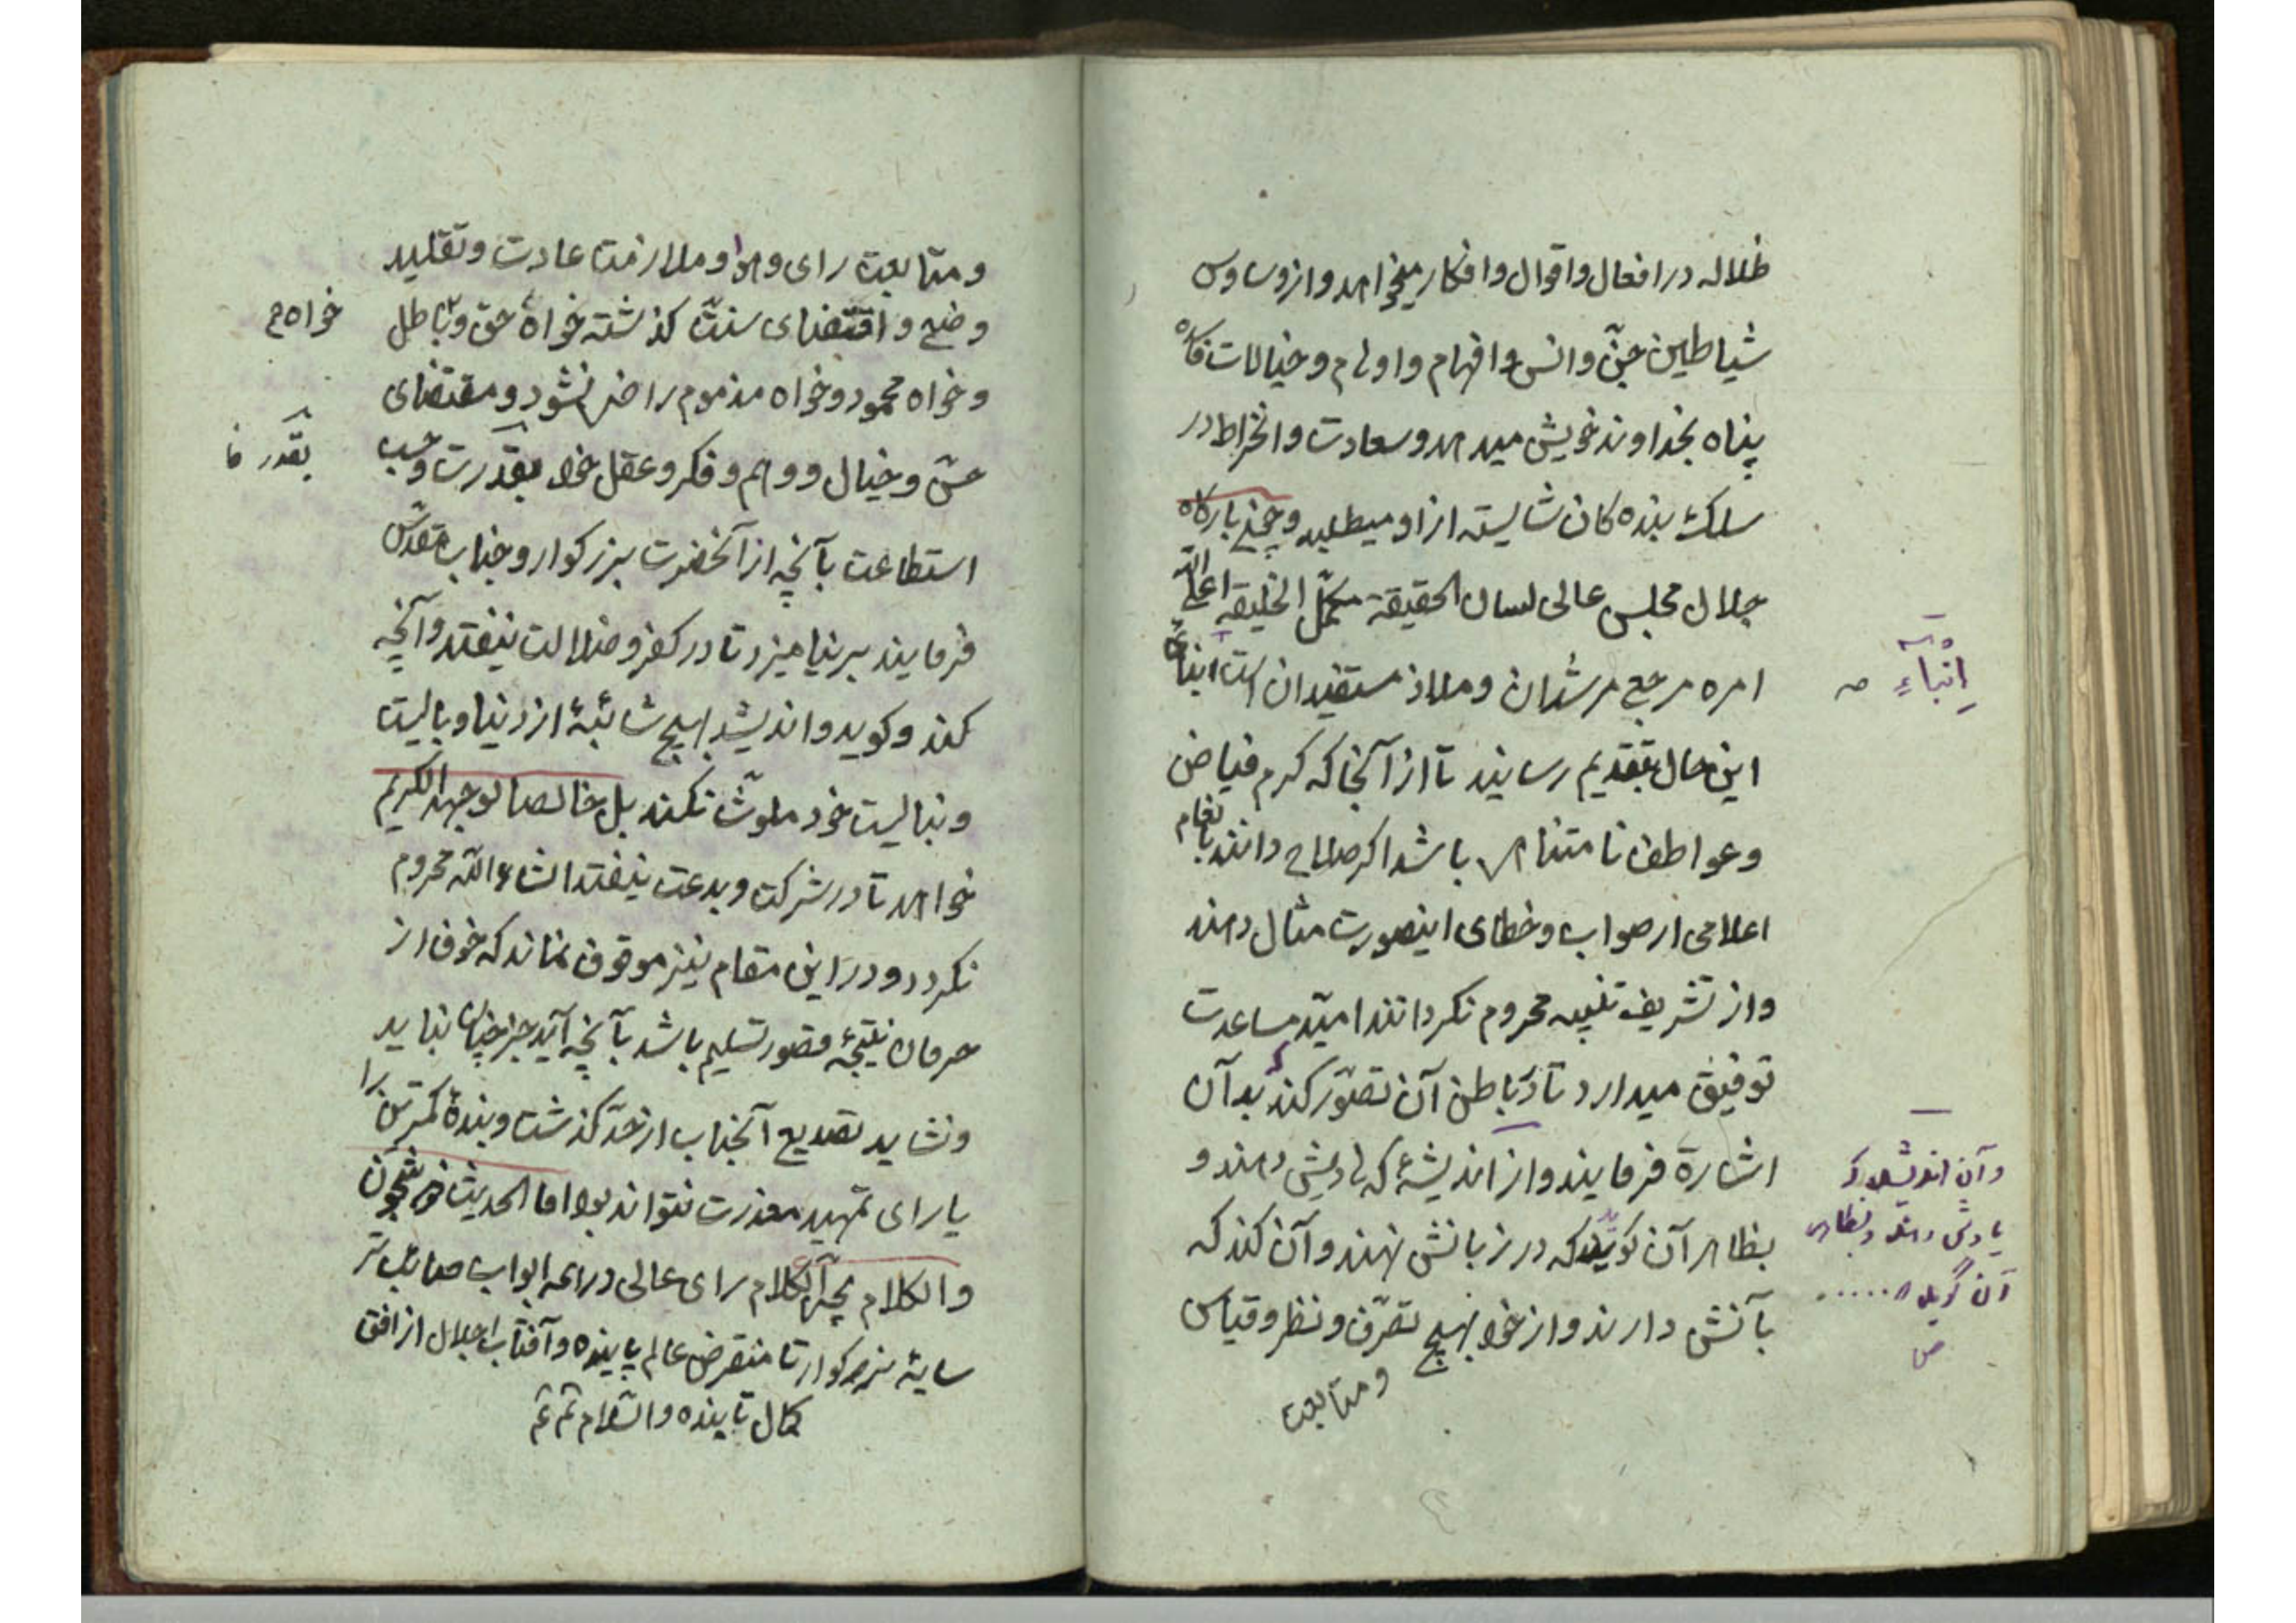 ظلاله در افعال و اقوال و افکار میخواهد و از وساوس
شیاطین جنّ و انس و افهام و اوهام و خیالات
پناه بخداوند خویش میدهد و سعادت و انخراط در
سلک بنده کان شایسته از او میطلبد و چون بارکاه
جلال مجلس عالی لسان الحقیقة مکمّل الخلیقه اعلی الله
امره مرجع مرشدان و ملاذ مستفیدان است
این حال بتقدیم رسانید تا از آنجا که کرم فیاض
و عواطف نامتناهی باشد اکر صلاح دانند بانعام
اعلامی از صواب و خطای اینصورت مثال دهند
و از تشریف تنبیه محروم نکردانند امیّد مساعدت
توفیق میدارد تا در باطن آن تصوّر کند که بدآن
اشارة فرمایند و از اندیشهٔ که یادش دهند و
بظاهر آن کوید که در زبانش نهند و آن کند که
بآنش دارند و از خود بهیچ تصرّف و نظر و قیاس
و متابعت
انباءِ
وآن اندیشد که
یادش دهند و بظاهر
آن گوید ......
ص
و متابعت رای و هوا و ملازمت عادت و تقلید
وضع و اقتضای سنت کذشته خواه حق و باطل
خواه
و خواه محمود و خواه مذموم راضی نشود و مقتضای
حسّ و خیال و وهم و فکر و عقل خود بقدرت وحسب
بقدر
استطاعت بآنچه از آنحضرت بزرکوار و جناب مقدّس
فرمایند برنیامیزد تا در کفر و ضلالت نیفتد و آنچه
کند و کوید و اندیشد بهیچ شائبهٔ از دنیا و بالیت
و نبالیت خود ملوّث نکند بل خالصا لوجهه الکریم
خواهد تا در شرکت و بدعت نیفتد انشاء الله محروم
نکردد و در این مقام نیز موقوف نماند که خوف از
حرمان نتیجهٔ قصور تسلیم باشد بآنچه آید جز چنان نباید
و نشاید تصدیع آنجناب از حدّ کذشت و بندهٔ کمترین را
یارای تمهید معذرت نتواند بود اما الحدیث ذو شجون
و الکلام یجرّ الکلام رای عالی در همه ابواب صائب تر
سایهٔ بزرکوار تا منقرض عالم پاینده و آفتاب اجلال از افق
کمال تابنده والسّلام تم تم